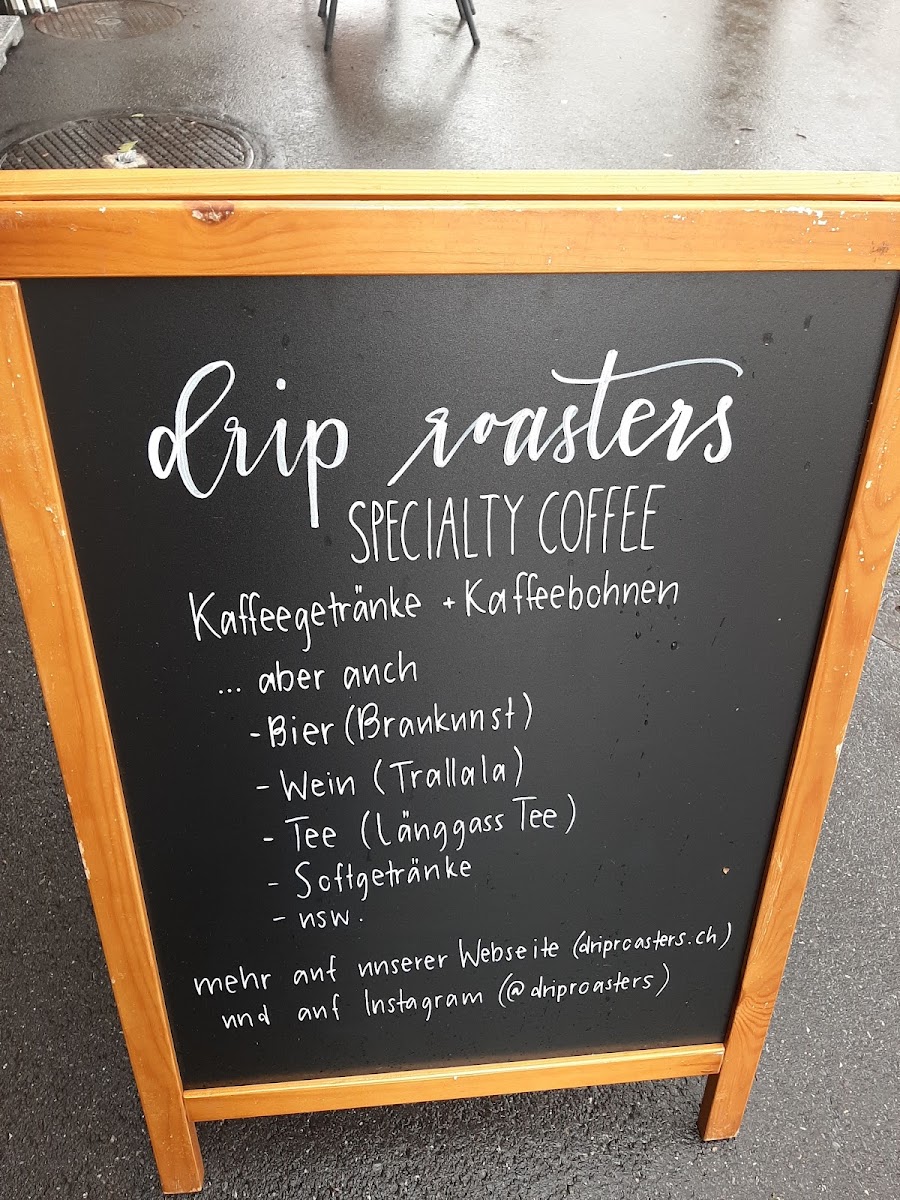 drip roasters
SPECIALTY COFFEE
Kaffeegetränke + Kaffeebohnen
... aber auch
- Bier (Braukunst)
- Wein (Trallala)
- Tee (Länggass Tee)
- Softgetränke
- usw.
mehr auf unserer Webseite (driproasters.ch)
und auf Instagram (@driproasters)